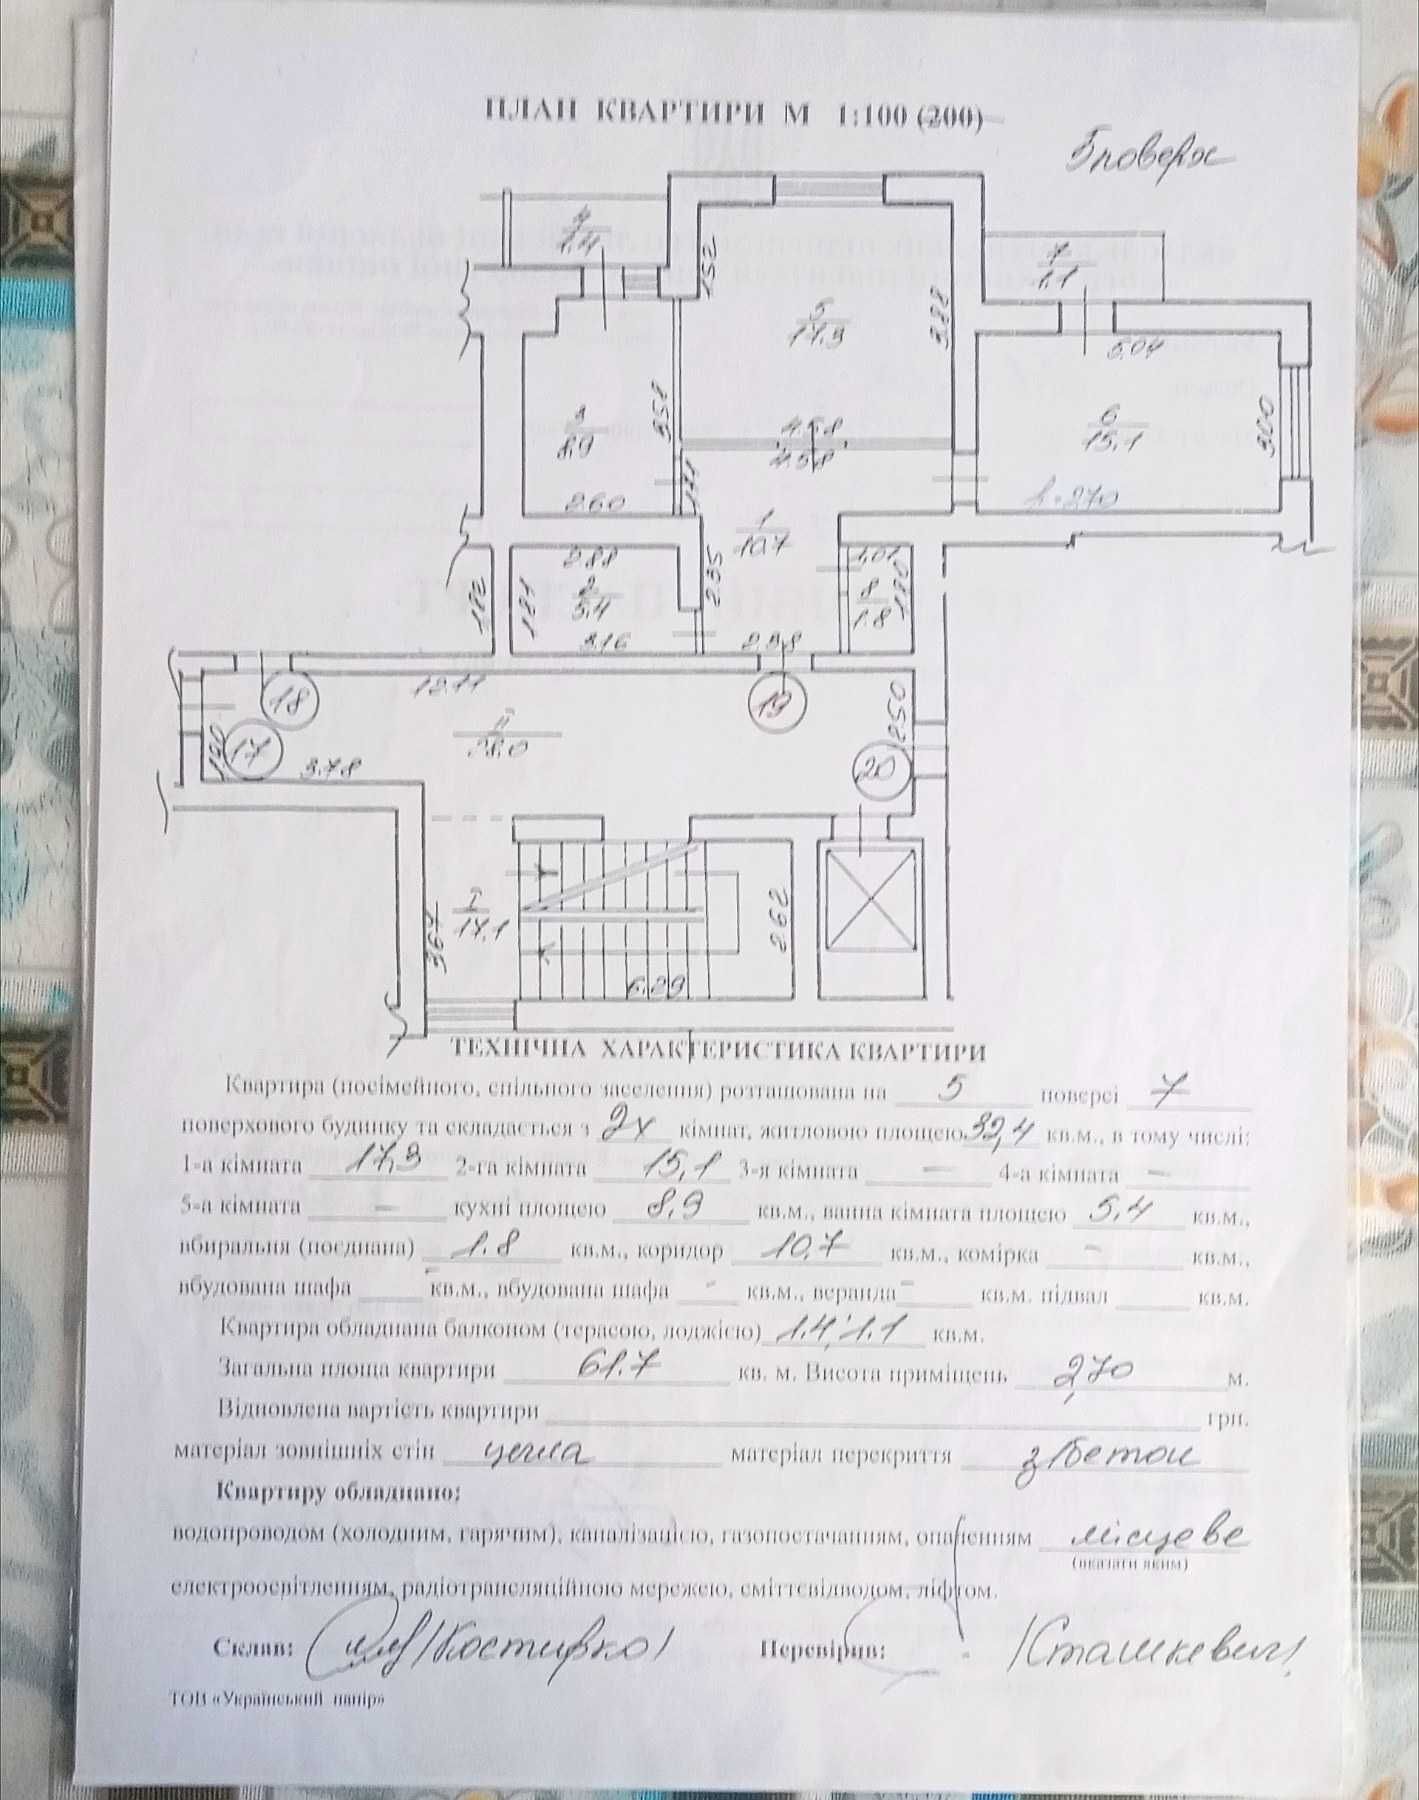 ПЛАН КВАРТИРИ М 1:100 (200)
5 поверх
4
1.4
7
1.1
152
5
17.3
3.88
5.04
3
8.9
3.51
4.58
4.58
6
15.1
300
2.60
1.71
h=2.70
1
10.7
2.88
2.35
1.01
182
181
2
5.4
8
1.8
180
3.16
2.38
12.11
18
19
ІІ
28.0
250
190
17
3.78
20
І
17.1
367
262
6.29
ТЕХНІЧНА ХАРАКТЕРИСТИКА КВАРТИРИ
Квартира (посімейного, спільного заселення) розташована на 5 поверсі 7
поверхового будинку та складається з 2х кімнат, житловою площею 32,4 кв.м., в тому числі:
1-а кімната 17,3 2-га кімната 15,1 3-я кімната — 4-а кімната —
5-а кімната — кухні площею 8,9 кв.м., ванна кімната площею 5,4 кв.м.,
вбиральня (поєднана) 1.8 кв.м., коридор 10,7 кв.м., комірка - кв.м.,
вбудована шафа - кв.м., вбудована шафа - кв.м., веранда - кв.м. підвал кв.м.
Квартира обладнана балконом (терасою, лоджією) 1.4; 1.1 кв.м.
Загальна площа квартири 61.7 кв. м. Висота приміщень 2,70 м.
Відновлена вартість квартири грн.
матеріал зовнішніх стін цегла матеріал перекриття з/бетон
Квартиру обладнано:
водопроводом (холодним, гарячим), каналізацією, газопостачанням, опаленням місцеве
(вказати яким)
електроосвітленням, радіотрансляційною мережею, сміттєвідводом, ліфтом.
Склав: /Костирко/ Перевірив: /Сташкевич/
ТОВ «Український папір»